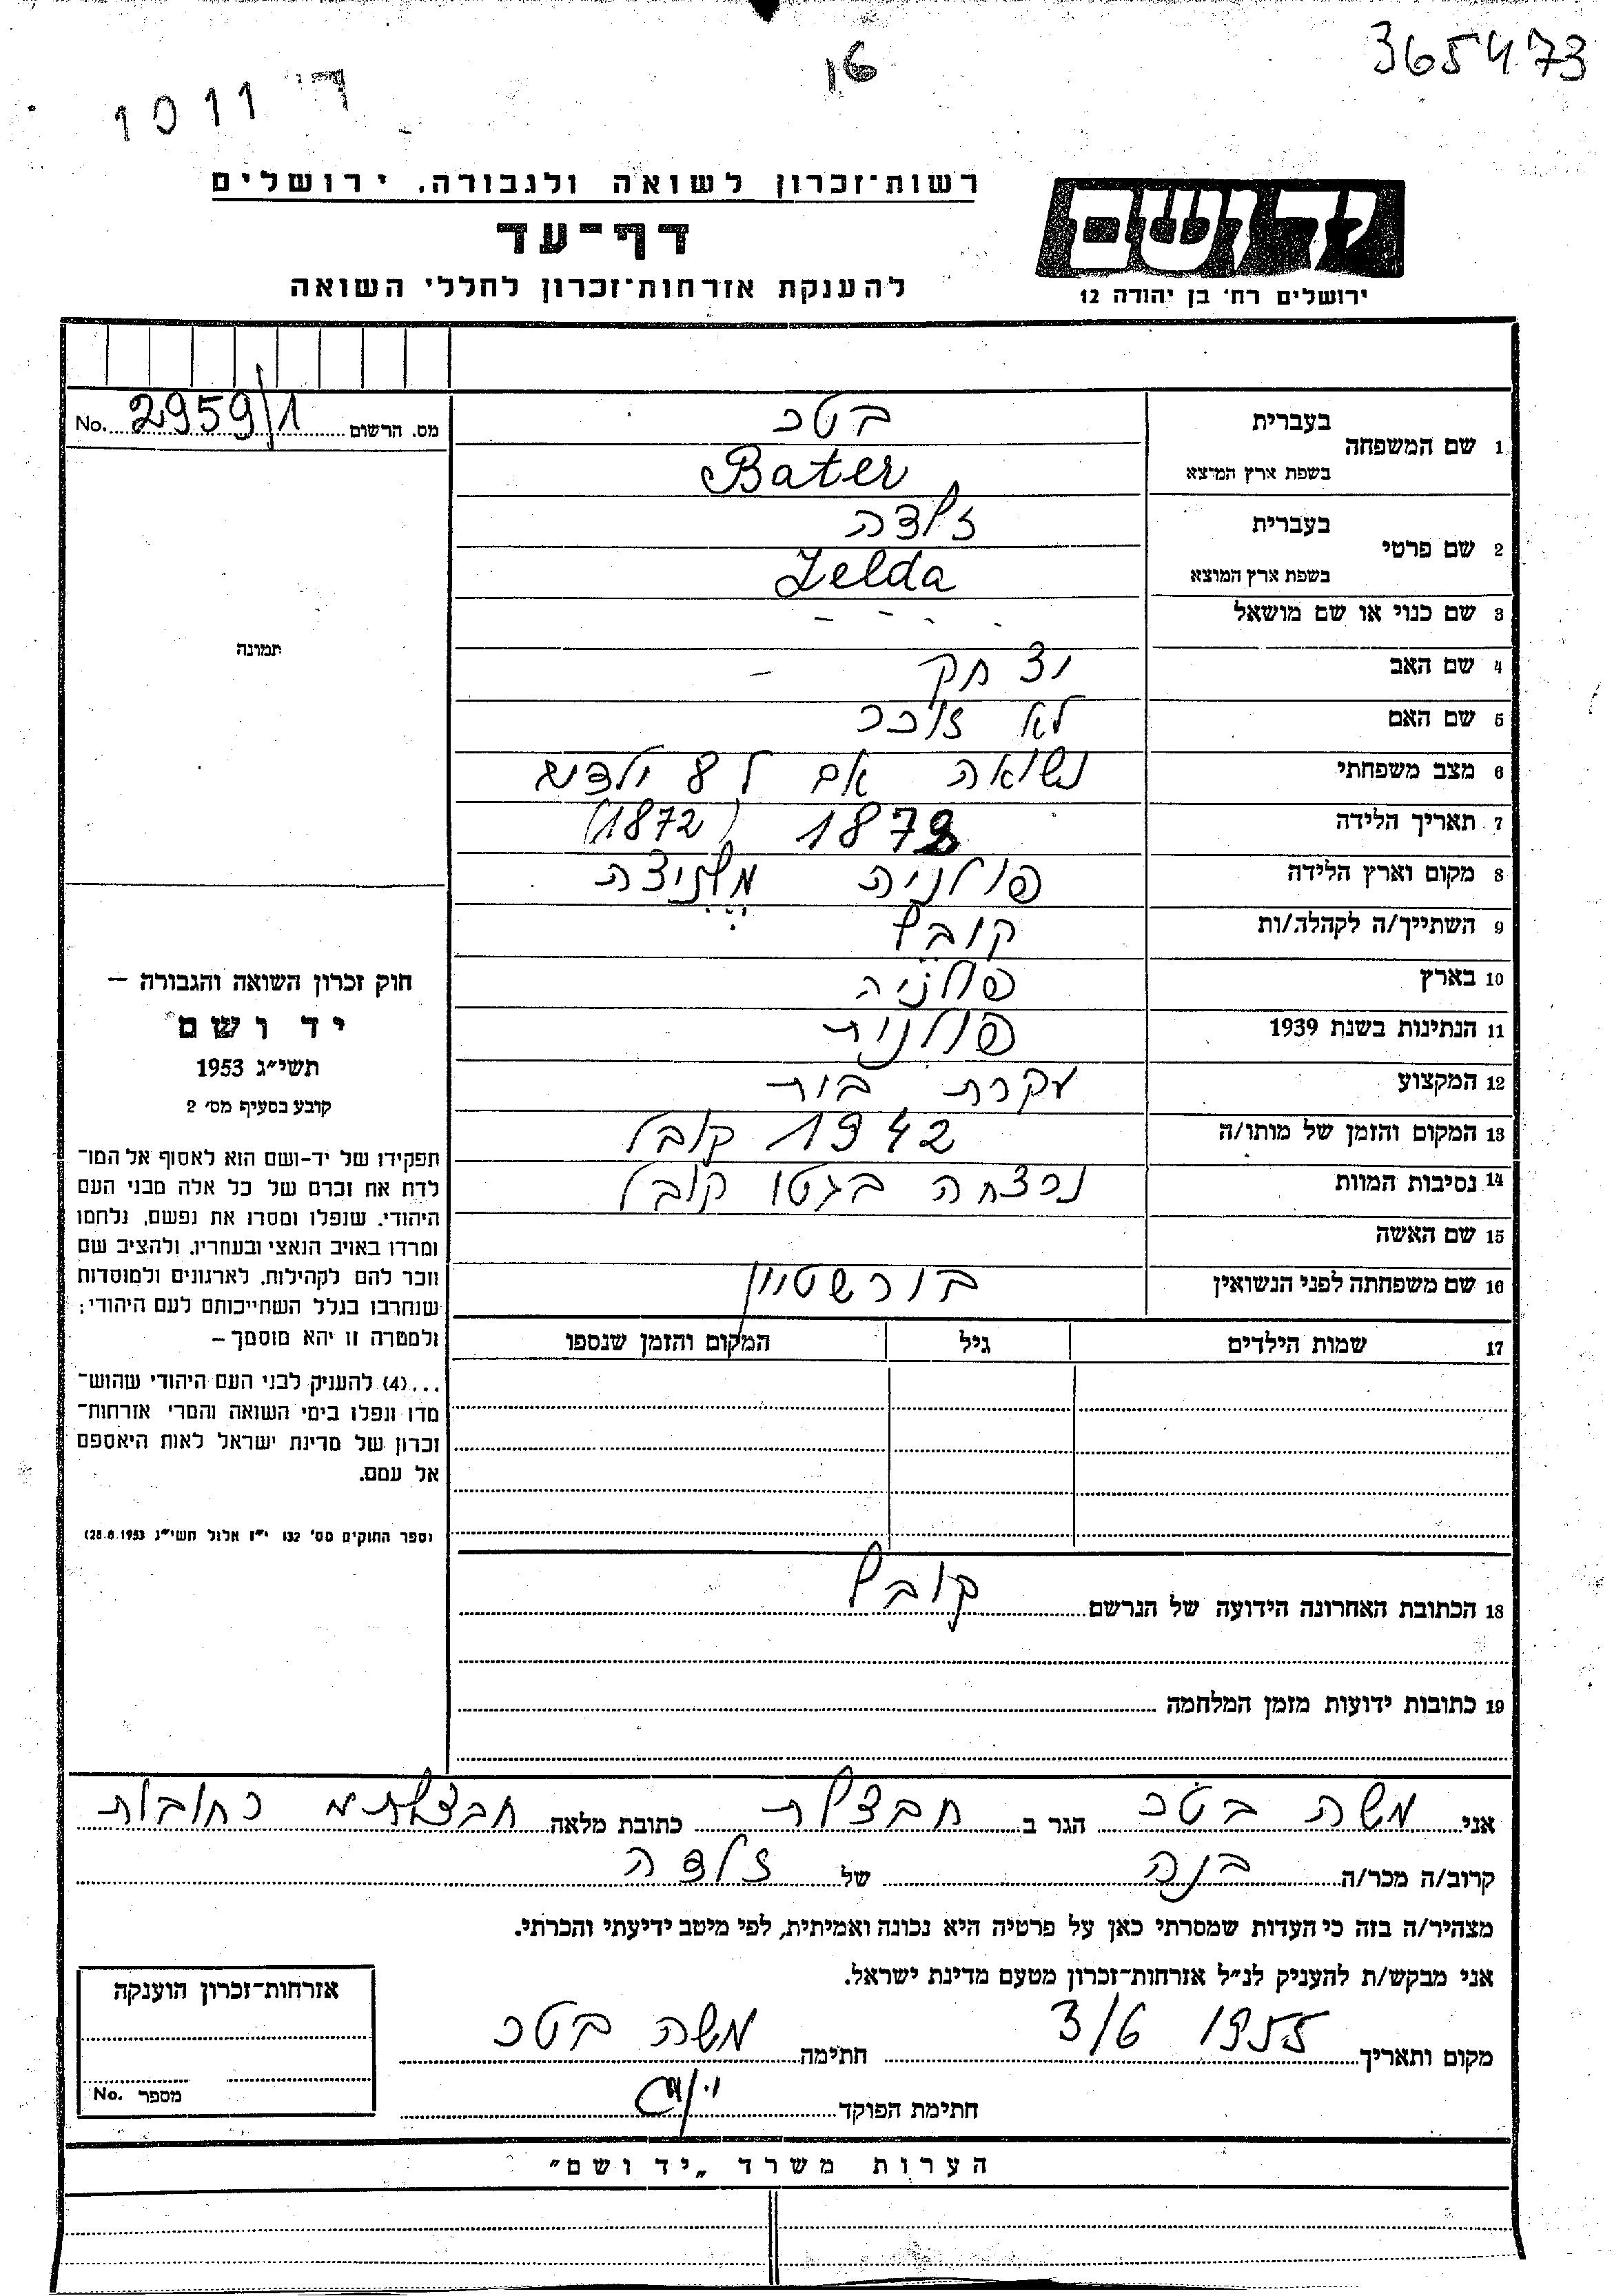 365473
16
ד' 1011
רשות־זכרון לשואה ולגבורה. ירושלים
דף־עד
להענקת אזרחות־זכרון לחללי השואה
יד ושם
ירושלים רח' בן יהודה 12
מס. הרשום 2959/1 No.
1 שם המשפחה
בעברית בטר
בשפת ארץ המוצא Bater
2 שם פרטי
בעברית זלדה
בשפת ארץ המוצא Zelda
3 שם כנוי או שם מושאל - - - -
4 שם האב יצחק -
5 שם האם לא זוכר
6 מצב משפחתי נשואה אם ל 8 ילדים
7 תאריך הלידה 1873 (1872)
8 מקום וארץ הלידה פולניה
9 השתייך/ה לקהלה/ות קובל
10 בארץ פולניה
11 הנתינות בשנת 1939 פולנית
12 המקצוע עקרת בית
13 המקום והזמן של מותו/ה 1942 קובל
14 נסיבות המוות נרצחה בגטו קובל
15 שם האשה
16 שם משפחתה לפני הנשואין בורשטיין
17 שמות הילדים גיל המקום והזמן שנספו
18 הכתובת האחרונה הידועה של הנרשם קובל
19 כתובות ידועות מזמן המלחמה
תמונה
חוק זכרון השואה והגבורה –
יד ושם
תשי״ג 1953
קובע בסעיף מס' 2
תפקידו של יד-ושם הוא לאסוף אל המו־
לדת את זכרם של כל אלה מבני העם
היהודי. שנפלו ומסרו את נפשם, נלחמו
ומרדו באויב הנאצי ובעוזריו, ולהציב שם
וזכר להם לקהילות, לארגונים ולמוסדות
שנחרבו בגלל השתייכותם לעם היהודי;
ולמטרה זו יהא מוסמך –
...(4) להעניק לבני העם היהודי שהוש־
מדו ונפלו בימי השואה והמרי אזרחות־
זכרון של מדינת ישראל לאות היאספם
אל עמם.
(ספר החוקים מס' 132 י״ז אלול תשי״ג 28.8.1953)
אני משה בטר הגר ב חבצלת כתובת מלאה חבצלת רחובות
קרוב/ה מכר/ה בנה של זלדה
מצהיר/ה בזה כי העדות שמסרתי כאן על פרטיה היא נכונה ואמיתית, לפי מיטב ידיעתי והכרתי.
אני מבקש/ת להעניק לנ״ל אזרחות־זכרון מטעם מדינת ישראל.
מקום ותאריך 3/6 1955 חתימה משה בטר
חתימת הפוקד
אזרחות־זכרון הוענקה
מספר No.
הערות משרד „יד ושם״